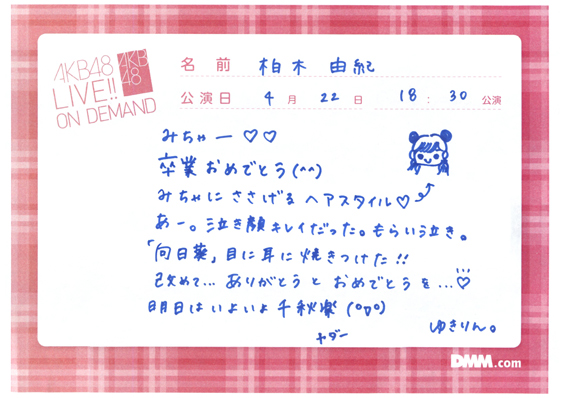 AKB48
LIVE!!
ON DEMAND
AKB
48
名前 柏木 由紀
公演日 4月 22日 18:30公演
みちゃー♡♡
卒業おめでとう(^^)
みちゃにささげるヘアスタイル♡
あー。泣き顔キレイだった。もらい泣き。
「向日葵」目に耳に焼きつけた!!
改めて... ありがとうとおめでとうを...♡
明日はいよいよ千秋楽(°▽°)
ヤダー
ゆきりん。
DMM.com